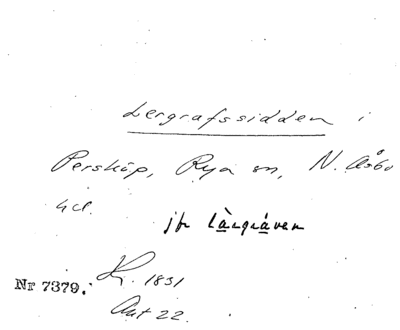 Lergrafssidden i
Persköp, Rya sn, N. Åsbo
hd.
jfr lärgraven
Nr 7379. K. 1831
Akt 22.